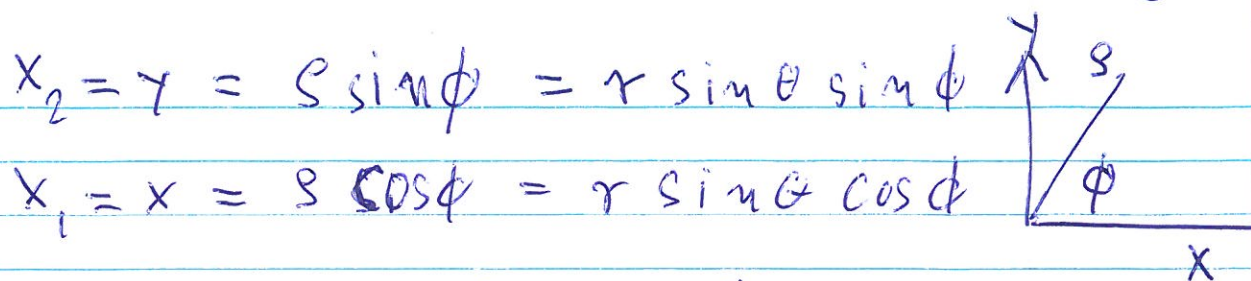 x₂ = y = ρ sinϕ = r sinθ sinϕ
x₁ = x = ρ cosϕ = r sinθ cosϕ
y
ρ
ϕ
x